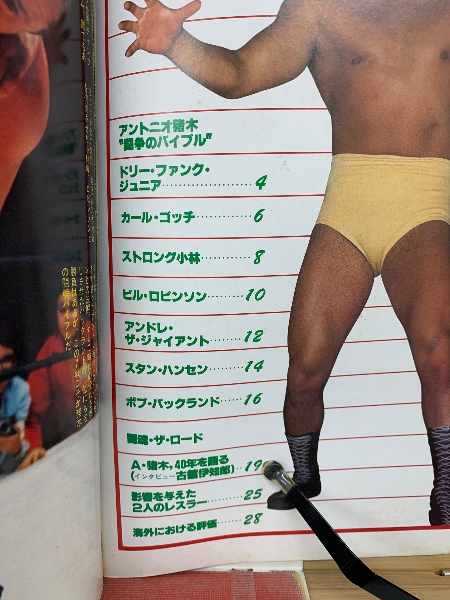 アントニオ猪木
"闘争のバイブル"
ドリー・ファンク・
ジュニア……………4
カール・ゴッチ………6
ストロング小林………8
ビル・ロビンソン……10
アンドレ・
ザ・ジャイアント……12
スタン・ハンセン……14
ボブ・バックランド……16
闘魂・ザ・ロード
A・猪木，40年を語る
(インタビュー古舘伊知郎)…19
影響を与えた
2人のレスラー……25
海外における評価……28